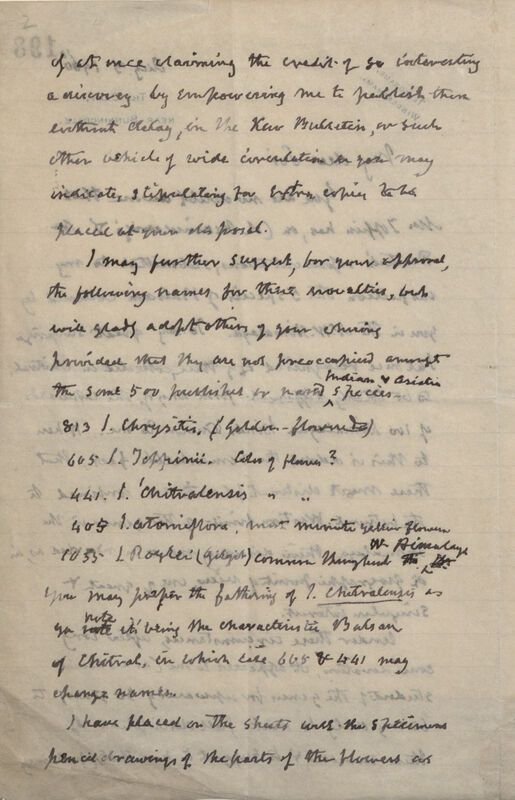 2
of at once claiming the credit of so interesting
a discovery by empowering me to publish them
without delay, in the Kew Bulletin, or such
other vehicle of wide circulation as you may
indicate, stipulating for extra copies to be
placed at your disposal.
I may further suggest, for your approval,
the following names for these novelties, but
will gladly adopt others of your chusing
provided that they are not preoccupied amongst
the some 500 published or named Indian & Asiatic species—
813 I. Chrysitis, (Golden-flowered)
605 I. Toppinii. Color of flower?
441. I. Chitralensis " "
405 I. atomiflora, most minute yellow flowers
1035– I. Roylei (Gilgit) common throughout W Himalaya
You may prefer the fathering of I. Chitralensis as
you note it being the characteristic Balsam
of Chitral, in which case 605 & 441 may
change names.
I have placed on the sheets with the specimens
pencil drawings of the parts of the flowers as